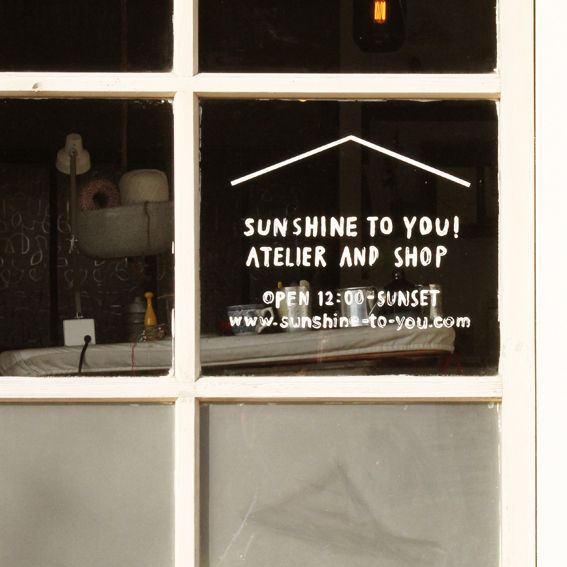 SUNSHINE TO YOU!
ATELIER AND SHOP
OPEN 12:00-SUNSET
www.sunshine-to-you.com